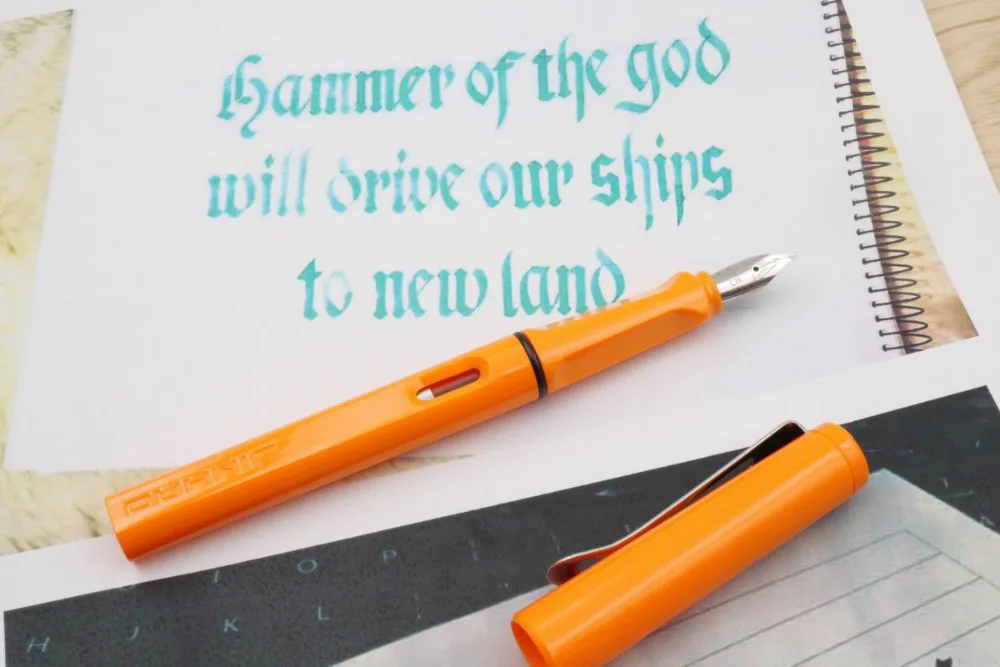 Hammer of the god
will drive our ships
to new land
I O P
H J K L